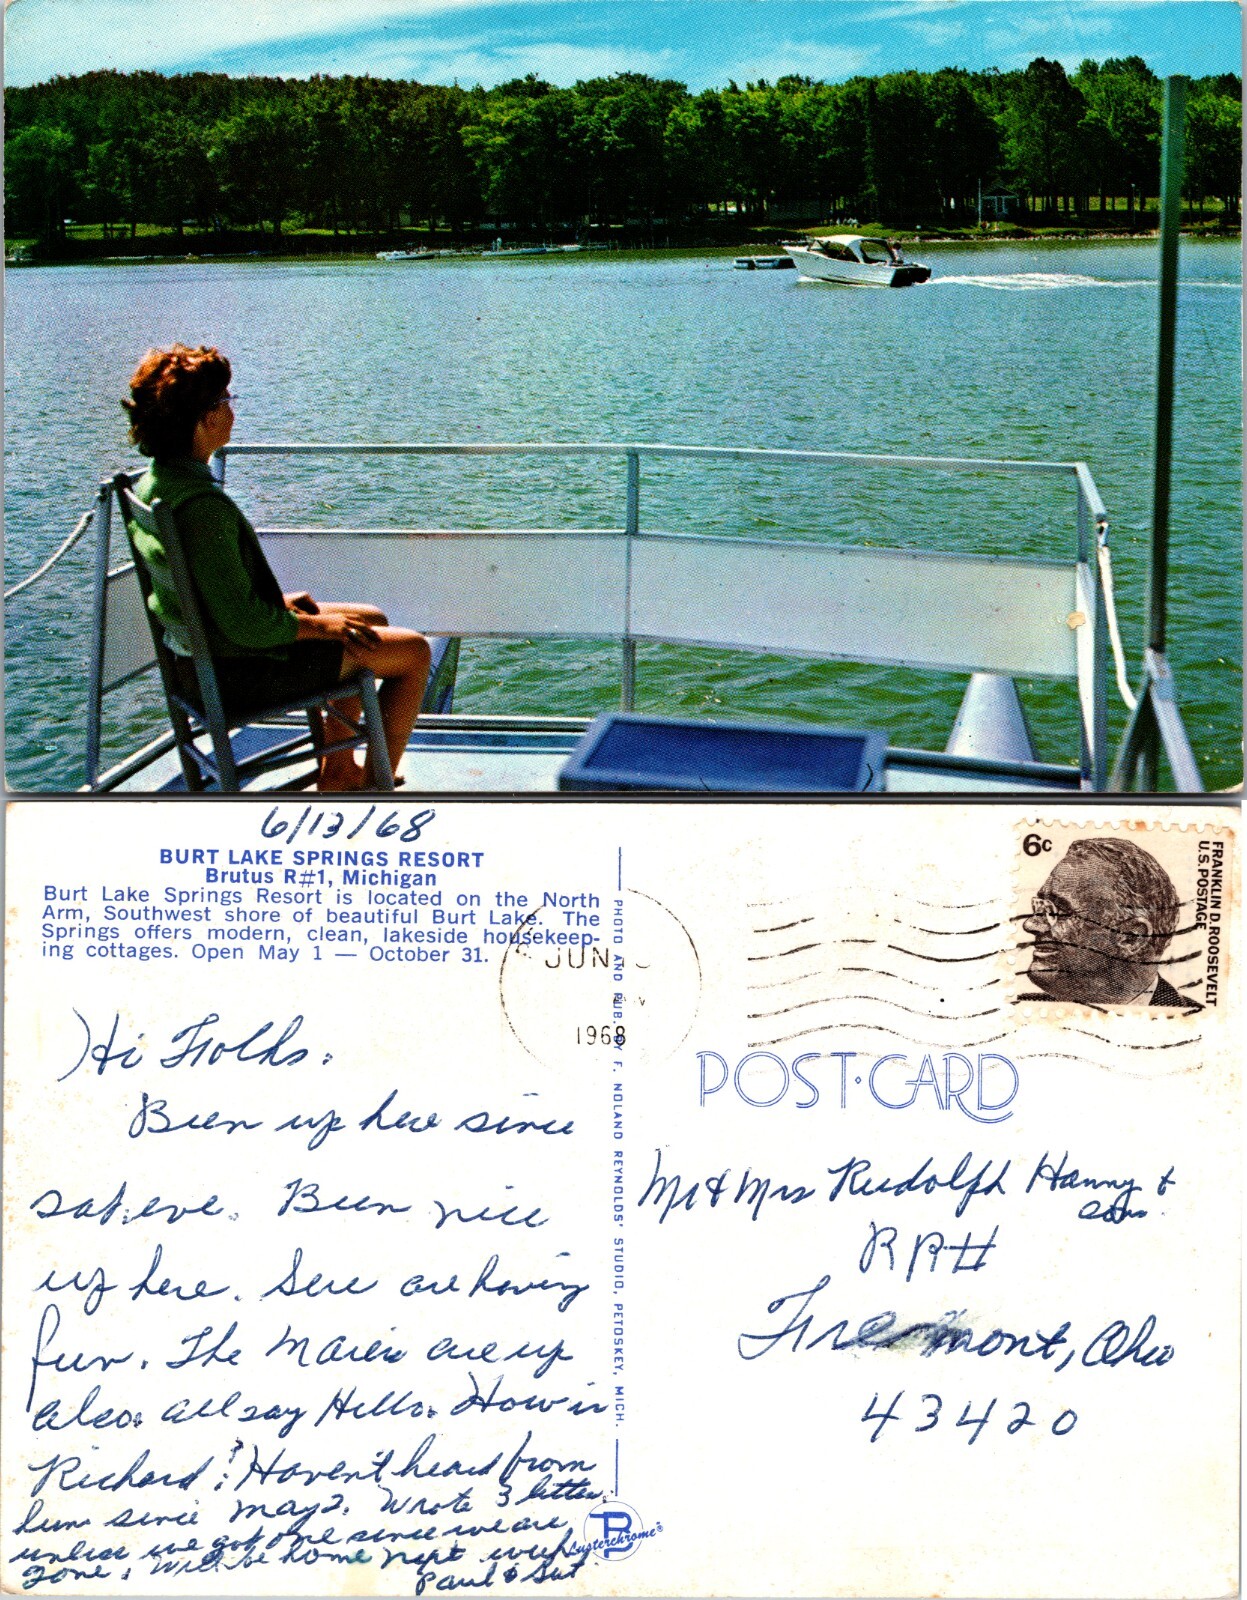 6/13/68
BURT LAKE SPRINGS RESORT
Brutus R#1, Michigan
Burt Lake Springs Resort is located on the North
Arm, Southwest shore of beautiful Burt Lake. The
Springs offers modern, clean, lakeside housekeep-
ing cottages. Open May 1 — October 31.
Hi Folks.
Been up here since
sat. eve. Been nice
up here. Sure are having
fun. The are up
also. All say Hello. How is
Richard? Haven't heard from
him since May 2. Wrote 3 letters.
unless we got one since we are
gone. Will be home next week
Paul &
PHOTO AND PUB. BY F. NOLAND REYNOLDS' STUDIO, PETOSKEY, MICH.
Lusterchrome®
JUN
1968
6c
FRANKLIN D. ROOSEVELT
U.S. POSTAGE
POST·CARD
Mr & Mrs Rudolph Hanny &
sons.
RR#
Fremont, Ohio
43420